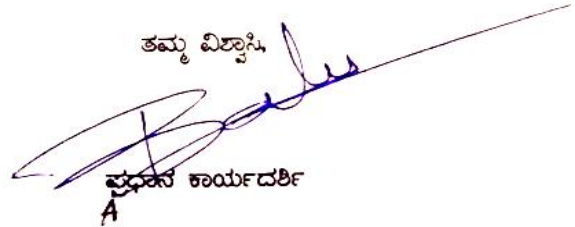 ತಮ್ಮ ವಿಶ್ವಾಸಿ,
ಪ್ರಧಾನ ಕಾರ್ಯದರ್ಶಿ
A